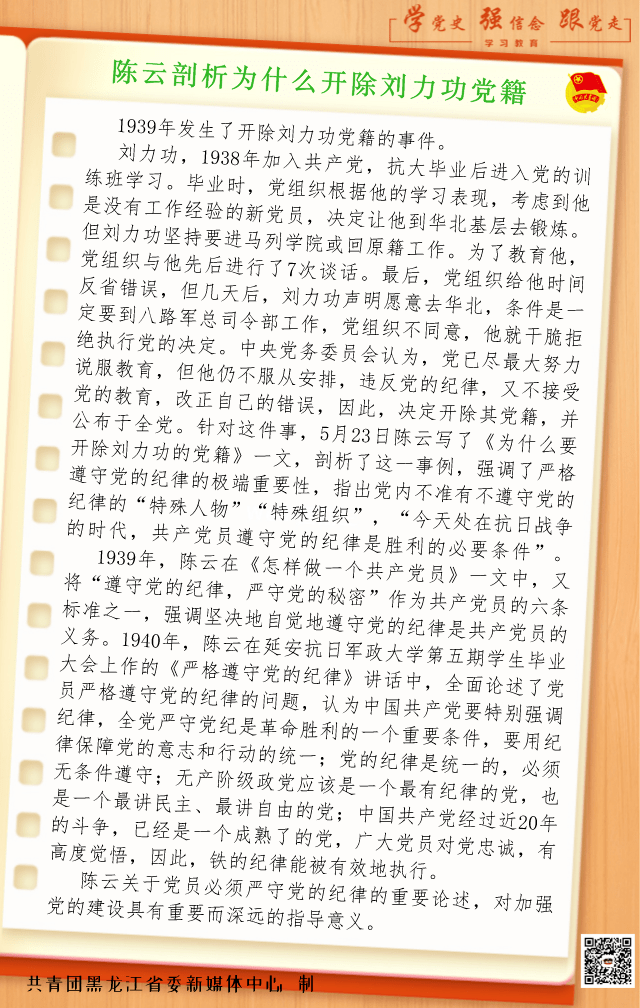 学党史 强信念 跟党走
学习教育
陈云剖析为什么开除刘力功党籍
1939年发生了开除刘力功党籍的事件。
刘力功，1938年加入共产党，抗大毕业后进入党的训
练班学习。毕业时，党组织根据他的学习表现，考虑到他
是没有工作经验的新党员，决定让他到华北基层去锻炼。
但刘力功坚持要进马列学院或回原籍工作。为了教育他，
党组织与他先后进行了7次谈话。最后，党组织给他时间
反省错误，但几天后，刘力功声明愿意去华北，条件是一
定要到八路军总司令部工作，党组织不同意，他就干脆拒
绝执行党的决定。中央党务委员会认为，党已尽最大努力
说服教育，但他仍不服从安排，违反党的纪律，又不接受
党的教育，改正自己的错误，因此，决定开除其党籍，并
公布于全党。针对这件事，5月23日陈云写了《为什么要
开除刘力功的党籍》一文，剖析了这一事例，强调了严格
遵守党的纪律的极端重要性，指出党内不准有不遵守党的
纪律的“特殊人物”“特殊组织”，“今天处在抗日战争
的时代，共产党员遵守党的纪律是胜利的必要条件”。
1939年，陈云在《怎样做一个共产党员》一文中，又
将“遵守党的纪律，严守党的秘密”作为共产党员的六条
标准之一，强调坚决地自觉地遵守党的纪律是共产党员的
义务。1940年，陈云在延安抗日军政大学第五期学生毕业
大会上作的《严格遵守党的纪律》讲话中，全面论述了党
员严格遵守党的纪律的问题，认为中国共产党要特别强调
纪律，全党严守党纪是革命胜利的一个重要条件，要用纪
律保障党的意志和行动的统一；党的纪律是统一的，必须
无条件遵守；无产阶级政党应该是一个最有纪律的党，也
是一个最讲民主、最讲自由的党；中国共产党经过近20年
的斗争，已经是一个成熟了的党，广大党员对党忠诚，有
高度觉悟，因此，铁的纪律能被有效地执行。
陈云关于党员必须严守党的纪律的重要论述，对加强
党的建设具有重要而深远的指导意义。
共青团黑龙江省委新媒体中心 制